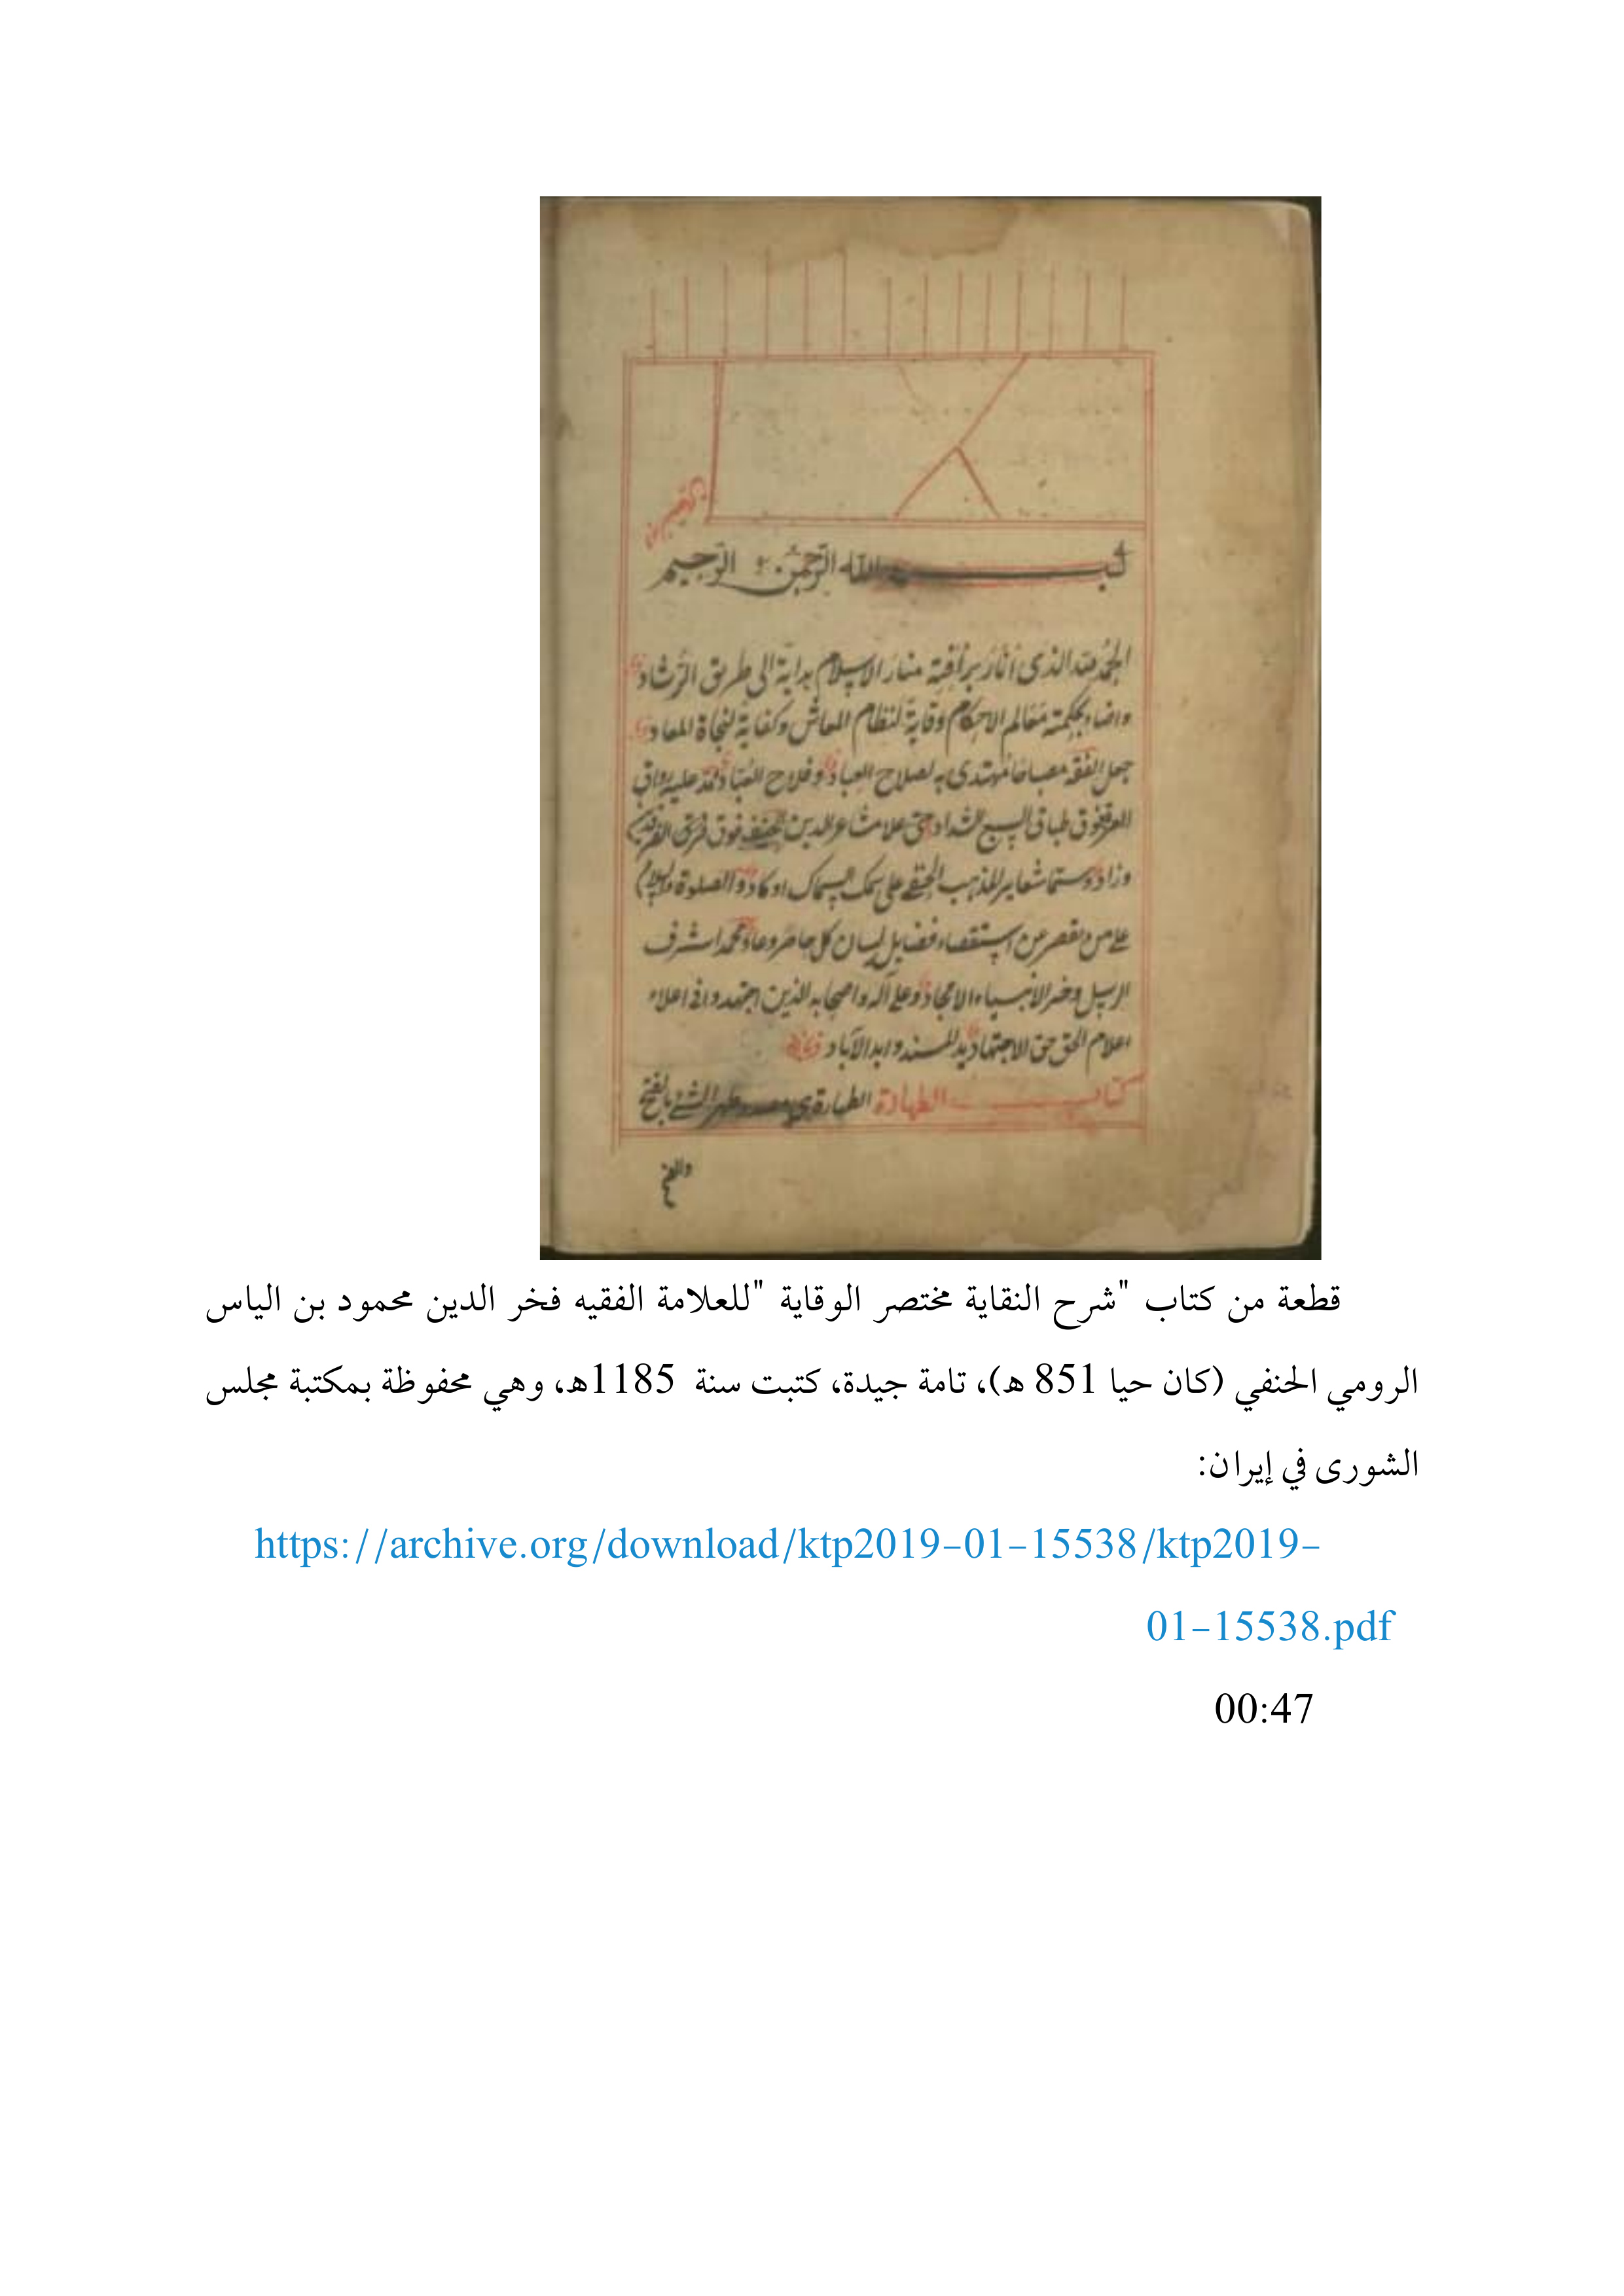 بسم الله الرحمن الرحيم
الحمد لله الذى أنار برأفته منار الاسلام بداية الى طريق الرشاد
واضاء بحكمته معالم الاحكام وقاية لنظام المعاش وكفاية لنجاة المعاد
جعل الفقه مصباحا يهتدى به لصلاح العباد وفلاح العباد
طباق السبع الشداد حتى علا مشاعر الدين فوق فرق
شعاير المذهب الحنفى على سمك السماك اوكاد والصلوة والسلام
على من يقصر عن استقصاء فضايله لسان كل حاضر وعاد محمد اشرف
الرسل وخير الانبياء الامجاد وعلى آله واصحابه الذين اجتهدوا فى اعلاء
اعلام الحق حق الاجتهاد ابد الآباد
كتاب الطهارة الطهارة طهر الشئ بالفتح
قطعة من كتاب "شرح النقاية مختصر الوقاية "للعلامة الفقيه فخر الدين محمود بن الياس
الرومي الحنفي (كان حيا 851 ه)، تامة جيدة، كتبت سنة 1185ه، وهي محفوظة بمكتبة مجلس
الشورى في إيران:
https://archive.org/download/ktp2019-01-15538/ktp2019-
01-15538.pdf
00:47